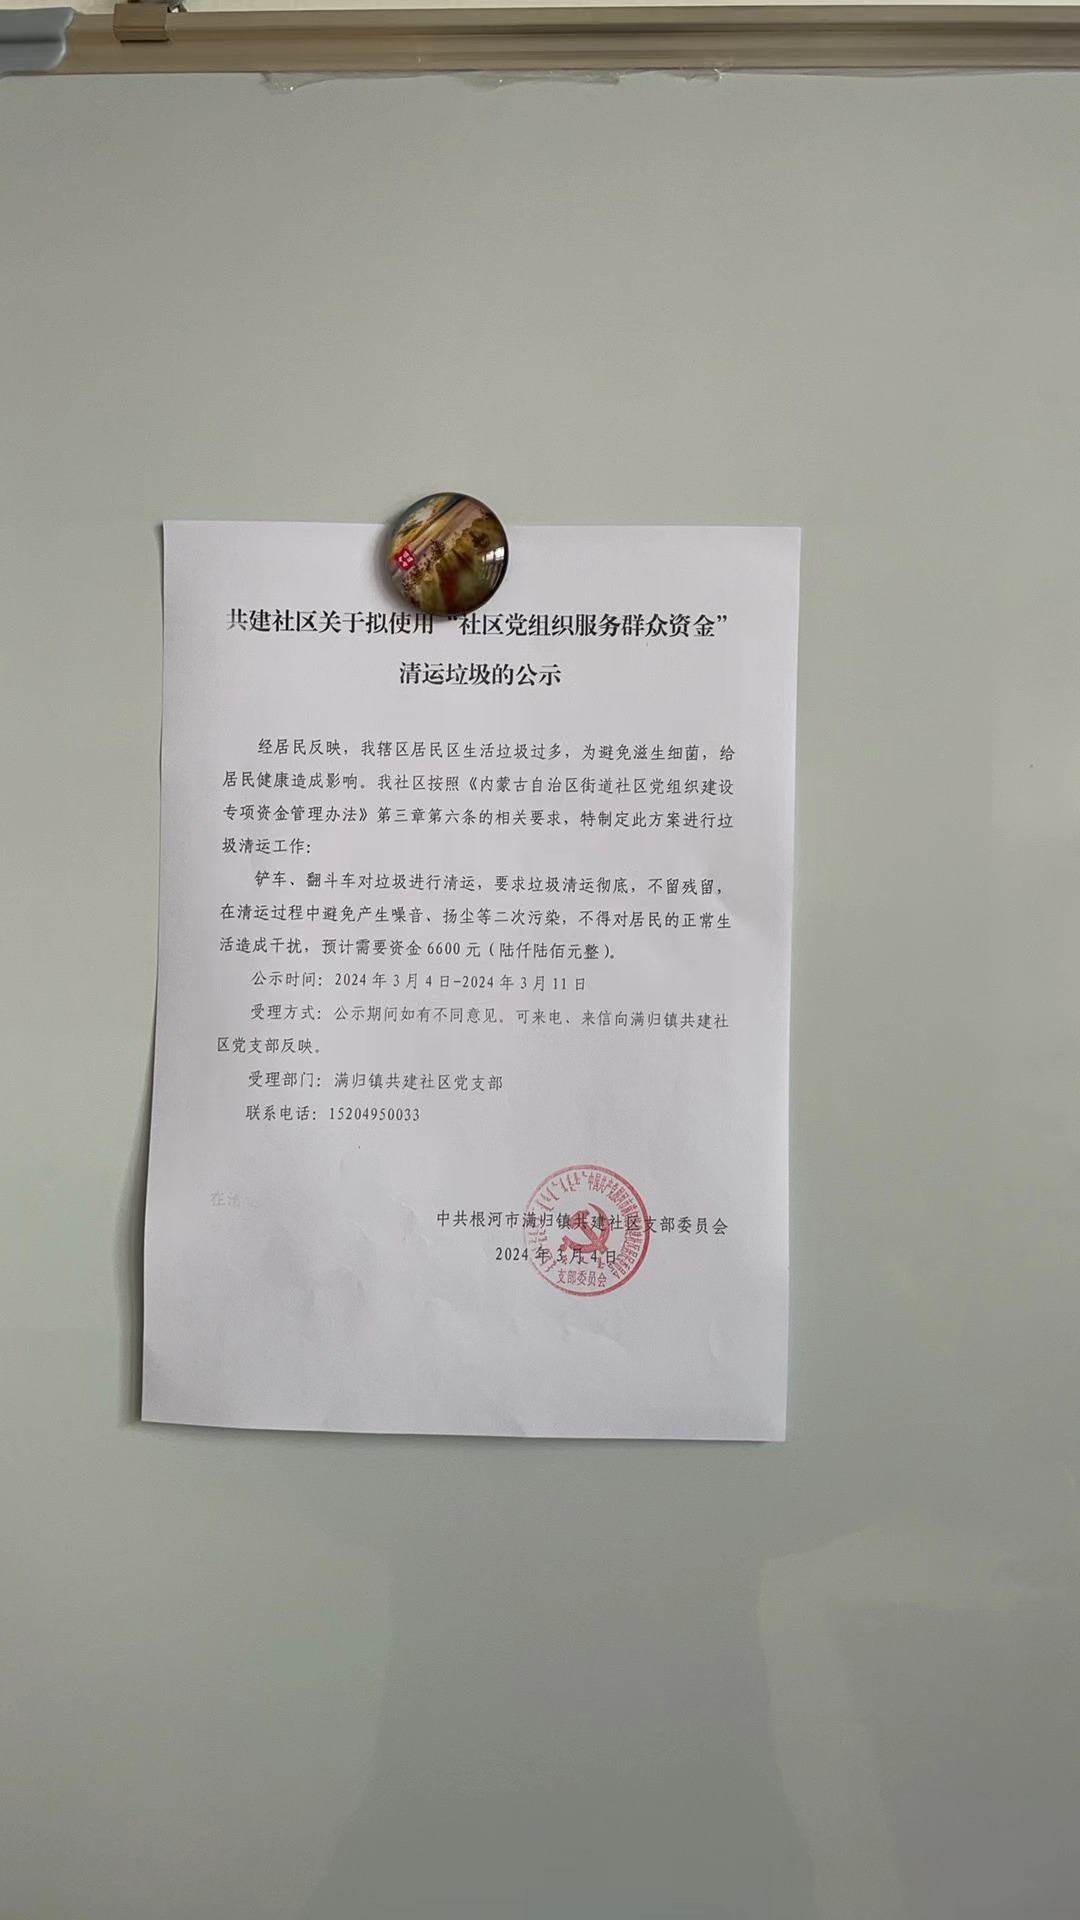 共建社区关于拟使用“社区党组织服务群众资金”
清运垃圾的公示
经居民反映，我辖区居民区生活垃圾过多，为避免滋生细菌，给
居民健康造成影响。我社区按照《内蒙古自治区街道社区党组织建设
专项资金管理办法》第三章第六条的相关要求，特制定此方案进行垃
圾清运工作：
铲车、翻斗车对垃圾进行清运，要求垃圾清运彻底，不留残留，
在清运过程中避免产生噪音、扬尘等二次污染，不得对居民的正常生
活造成干扰，预计需要资金 6600 元（陆仟陆佰元整）。
公示时间：2024 年 3 月 4 日-2024 年 3 月 11 日
受理方式：公示期间如有不同意见。可来电、来信向满归镇共建社
区党支部反映。
受理部门：满归镇共建社区党支部
联系电话：15204950033
中共根河市满归镇共建社区支部委员会
2024 年 3 月 4 日
支部委员会